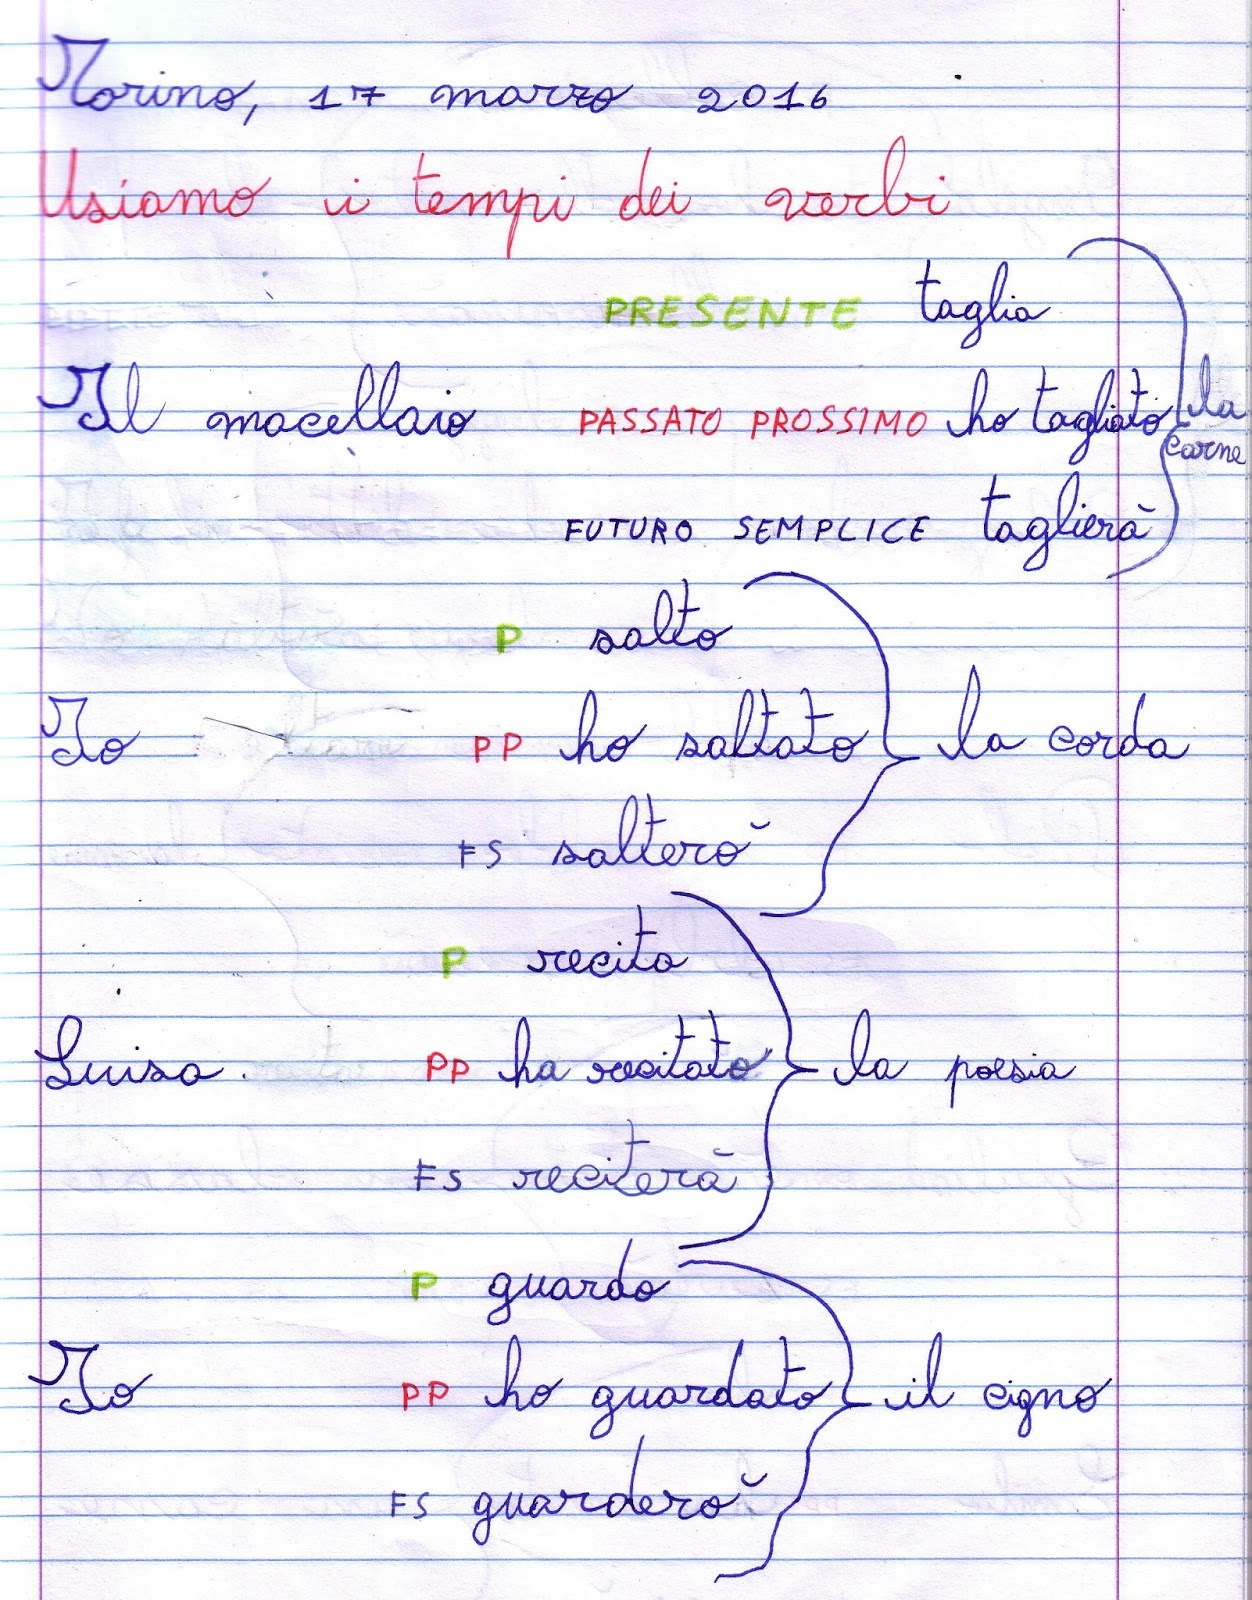 Torino, 17 marzo 2016
Usiamo i tempi dei verbi
PRESENTE taglia
Il macellaio PASSATO PROSSIMO ho tagliato la carne
FUTURO SEMPLICE taglierà
P salto
Io PP ho saltato la corda
FS salterò
P recita
Luisa PP ha recitato la poesia
FS reciterà
P guardo
Io PP ho guardato il cigno
FS guarderò